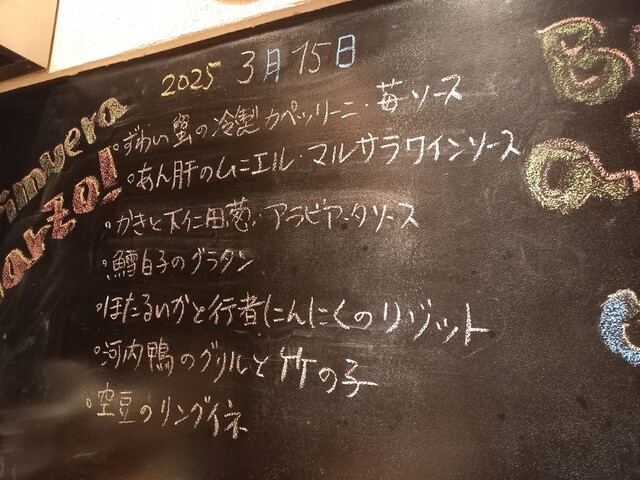 2025 3月15日
imvera
arzo!
・ずわい蟹の冷製カペッリーニ・苺ソース
・あん肝のムニエル・マルサラワインソース
・かきと下仁田葱・アラビアータソース
・鱈白子のグラタン
・ほたるいかと行者にんにくのリゾット
・河内鴨のグリルと竹の子
・空豆のリングイネ